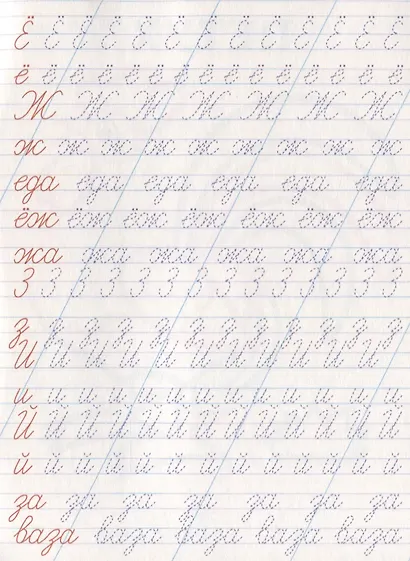 Ё Ё Ё Ё Ё Ё Ё Ё Ё Ё Ё Ё Ё
ё ё ё ё ё ё ё ё ё ё ё ё ё ё ё
Ж Ж Ж Ж Ж Ж Ж
ж ж ж ж ж ж ж ж ж
еда еда еда еда еда еда
ёж ёж ёж ёж ёж ёж ёж
жа жа жа жа жа жа
З З З З З З З З З З З З З З
з з з з з з з з з з з з
И И И И И И И И И И И И
и и и и и и и и и и и и и
Й Й Й Й Й Й Й Й Й Й Й Й Й
й й й й й й й й й й й й й
за за за за за за за
ваза ваза ваза ваза ваза